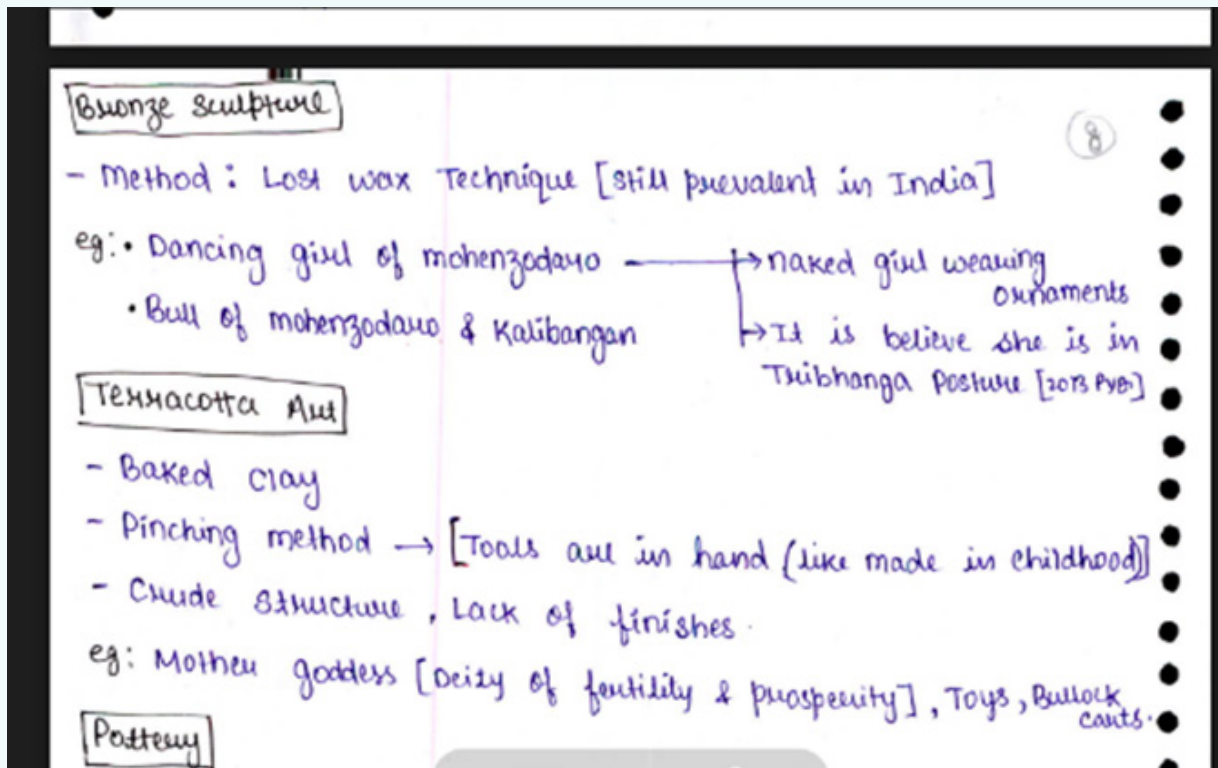 Bronze sculpture
8
- Method : Lost wax Technique [still prevalent in India]
eg: • Dancing girl of mohenzodaro → naked girl wearing
ornaments
• Bull of mohenzodaro & Kalibangan
→ It is believe she is in
Tribhanga Posture [2013 PYQ]
Terracotta Art
- Baked clay
- Pinching method → [Tools are in hand (like made in childhood)]
- Crude structure, Lack of finishes.
eg: Mother goddess [Deity of fertility & prosperity], Toys, Bullock
carts.
Pottery